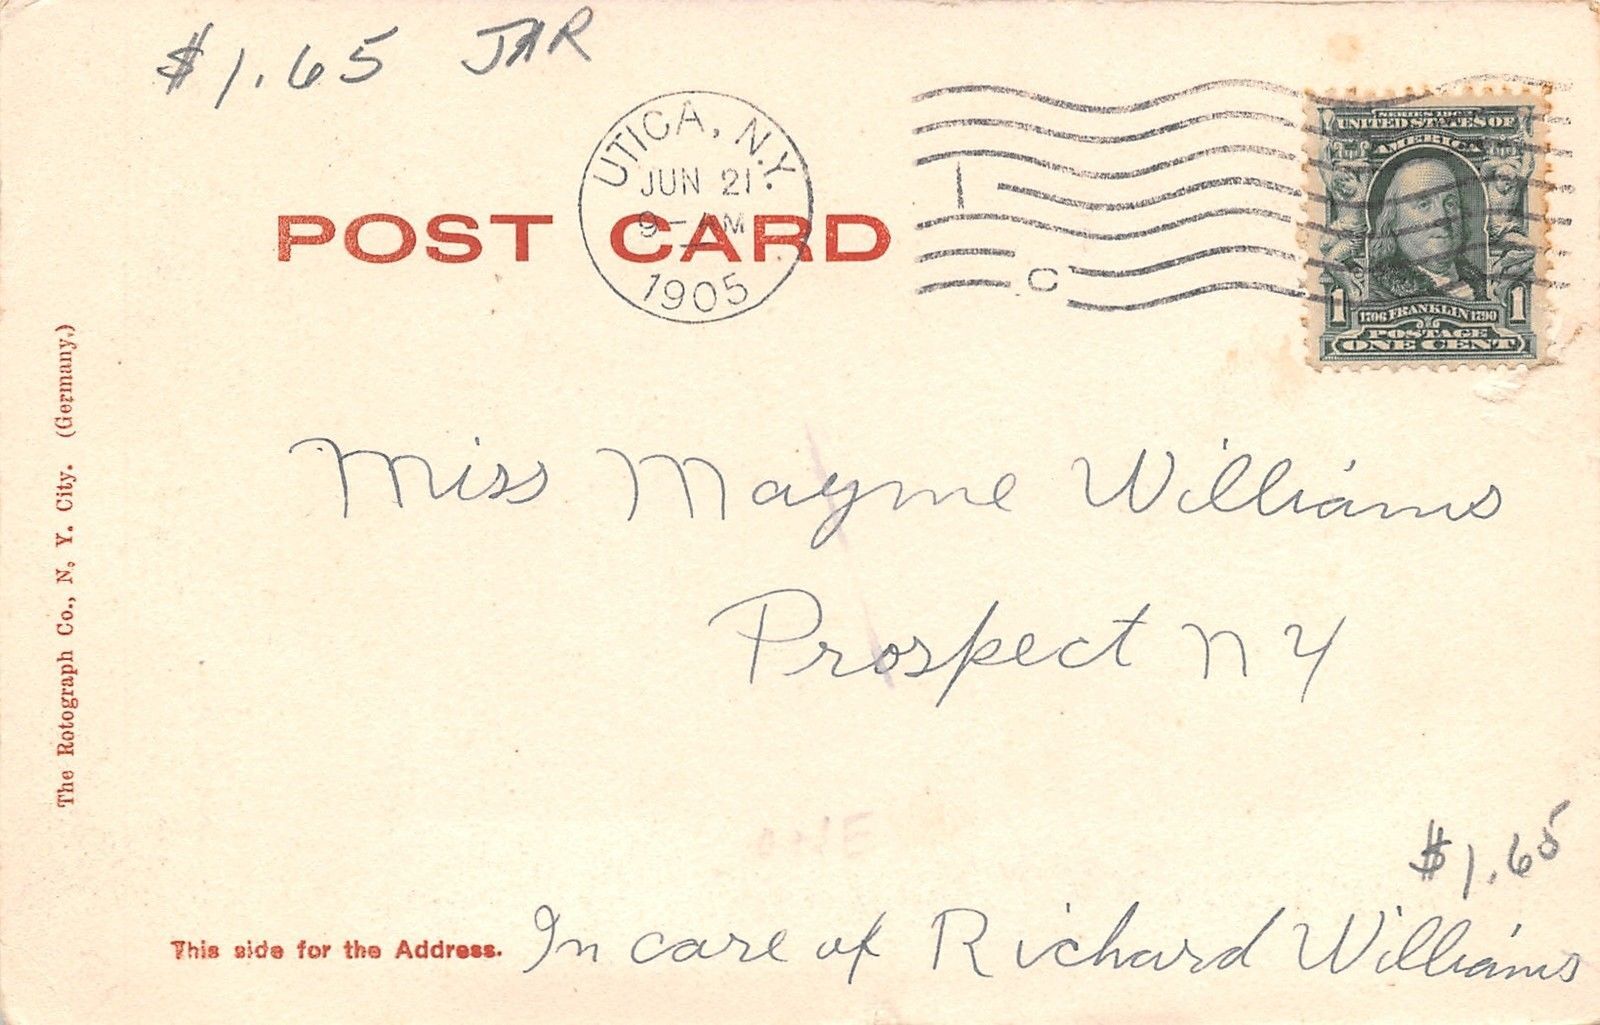 $1.65 JAR
UTICA, N.Y.
JUN 21
9-AM
1905
1
C
UNITED STATES OF
AMERICA
1 1706 FRANKLIN 1790 1
POSTAGE
ONE CENT
POST CARD
The Rotograph Co., N. Y. City. (Germany.)
Miss Mayme Williams
Prospect N Y
$1.65
This side for the Address. In care of Richard Williams